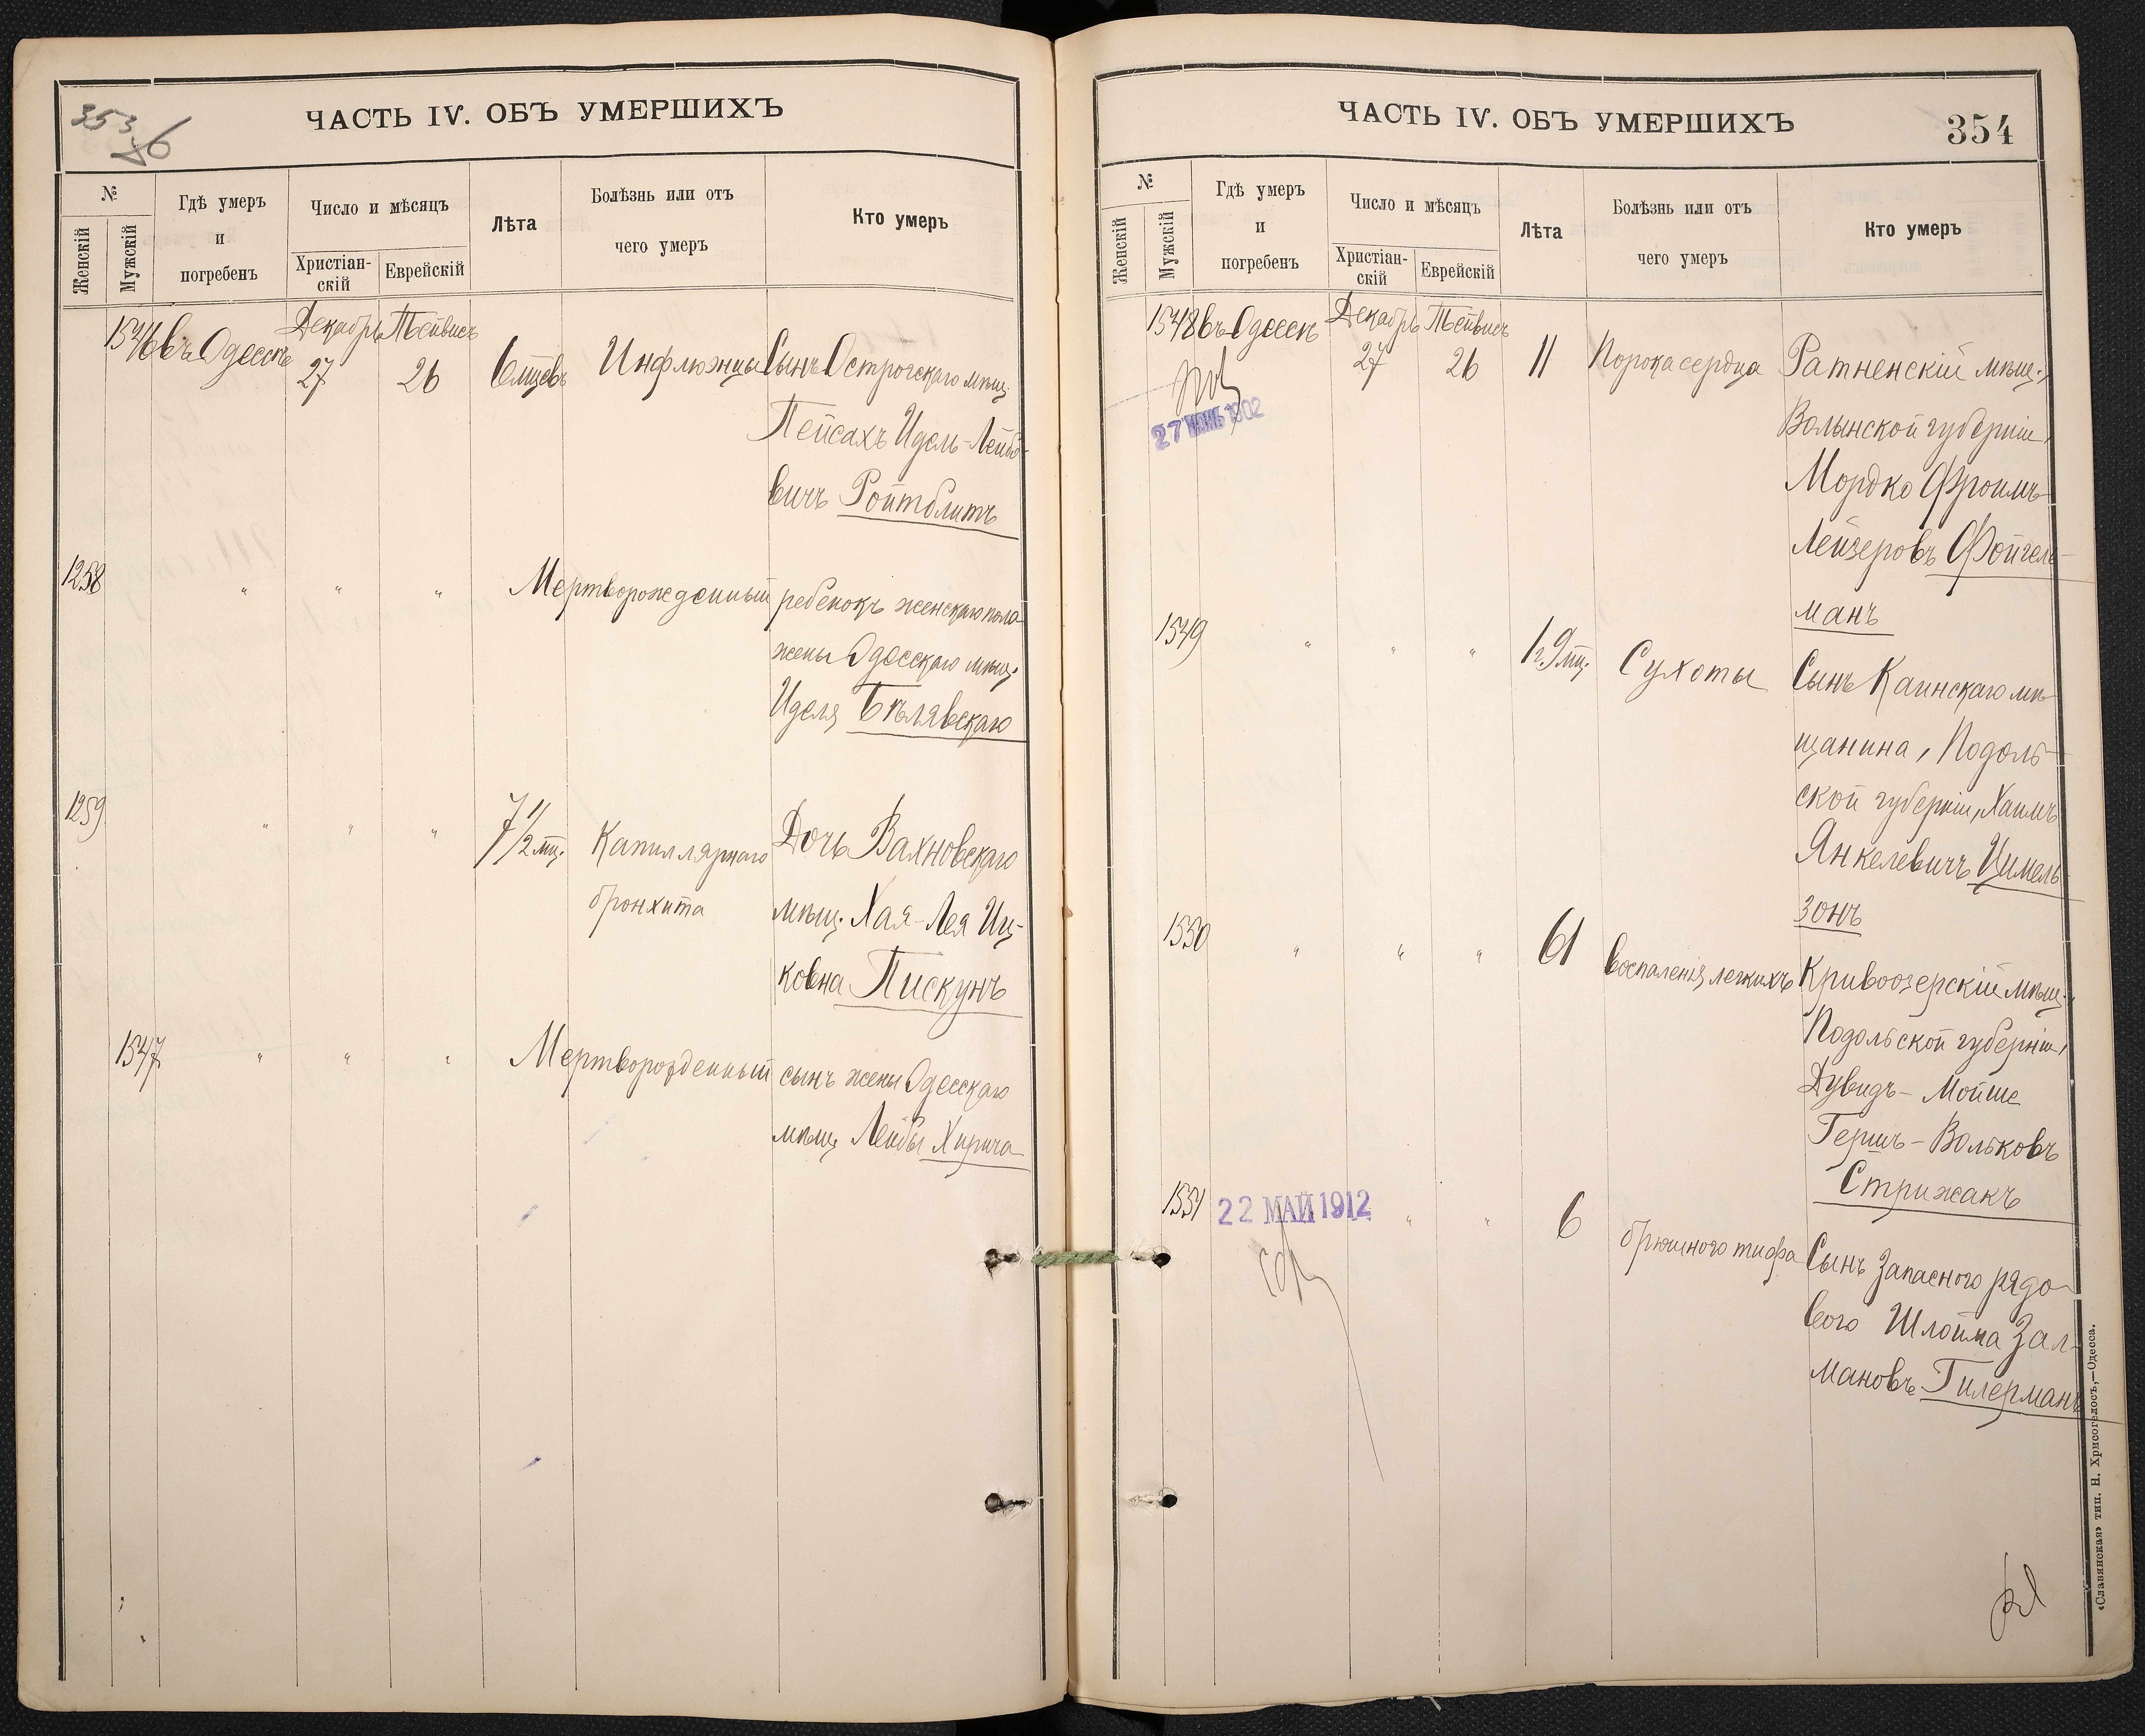 353
ЧАСТЬ IV. ОБЪ УМЕРШИХЪ
№
Женскій
Мужскій
Гдѣ умеръ
и
погребенъ
Число и мѣсяцъ
Христіан-
скій
Еврейскій
Лѣта
Болѣзнь или отъ
чего умеръ
Кто умеръ
1546 въ Одессѣ Декабрь 27 Тейвисъ 26 6 мцевъ Инфлюэнцы Сынъ Острогскаго мѣщ.
Пейсахъ Идель-Лейбо-
вичъ Ройтблитъ
1258 " " " Мертворожденный ребенокъ женскаго пола
жены Одесскаго мѣщ.
Иделя Бѣлявскаго
1259 " " " 7 1/2 мц. Капиллярнаго Дочь Вахновскаго
бронхита мѣщ. Хая-Лея Иц-
ковна Пискунъ
1547 " " " Мертворожденный сынъ жены Одесскаго
мѣщ. Лейбы Хирича
ЧАСТЬ IV. ОБЪ УМЕРШИХЪ
354
№
Женскій
Мужскій
Гдѣ умеръ
и
погребенъ
Число и мѣсяцъ
Христіан-
скій
Еврейскій
Лѣта
Болѣзнь или отъ
чего умеръ
Кто умеръ
1548 въ Одессѣ Декабрь 27 Тейвисъ 26 11 Порока сердца Ратненскій мѣщ.,
27 1902
Волынской губерніи,
Мордко Фроимъ-
Лейзеровъ Фойгель-
манъ
1549 " " " 1 г. 9 мц. Сухоты Сынъ Каинскаго мѣ-
щанина, Подоль-
ской губерніи, Хаимъ
Янкелевичъ Цимель-
зонъ
1550 " " " 61 Воспаленія легкихъ Кривоозерскій мѣщ.,
Подольской губерніи,
Дувидъ-Мойше
Гершъ-Вольковъ
Стрижакъ
1551 22 МАЙ 1912 " " 6 брюшного тифа Сынъ запасного рядо-
вого Шлойма Зал-
мановъ Гилерманъ
«Славянская» тип. Н. Хрисогелосъ,—Одесса.